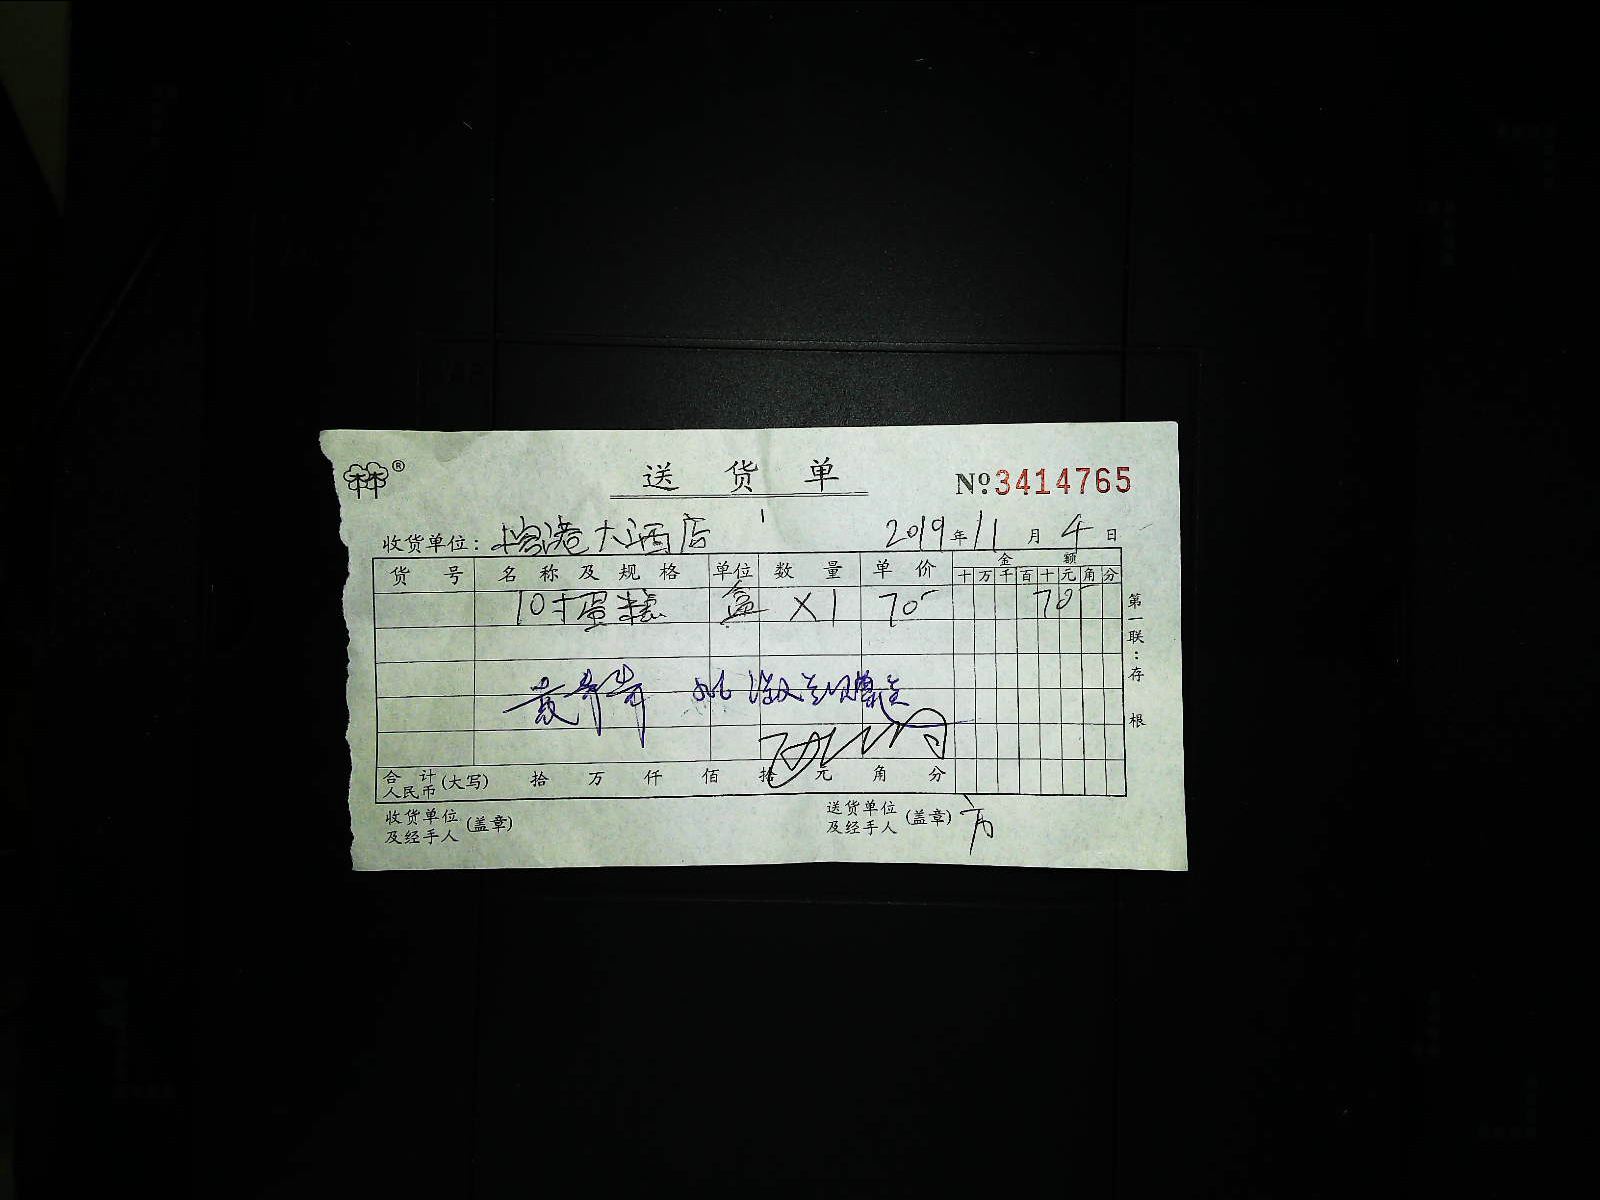 送货单
№3414765
收货单位: 港大酒店 2019年11月4日
货号 名称及规格 单位 数量 单价 金额
十万千百十元角分
10寸蛋糕 盒 X1 70 70
合计人民币(大写) 拾 万 仟 佰 拾 元 角 分
收货单位及经手人(盖章) 送货单位及经手人(盖章)
第一联:存根